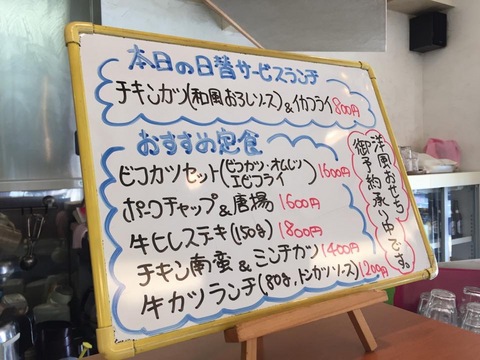 本日の日替サービスランチ
チキンカツ(和風おろしソース)&イカフライ 800円
おすすめ定食
ビフカツセット(ビフカツ・オムレツ エビフライ) 1600円
ポークチャップ&唐揚 1600円
牛ヒレステーキ(150g) 1800円
チキン南蛮&ミンチカツ 1400円
牛カツランチ(80g,トンカツソース) 1200円
洋風おせち
御予約承り中です。